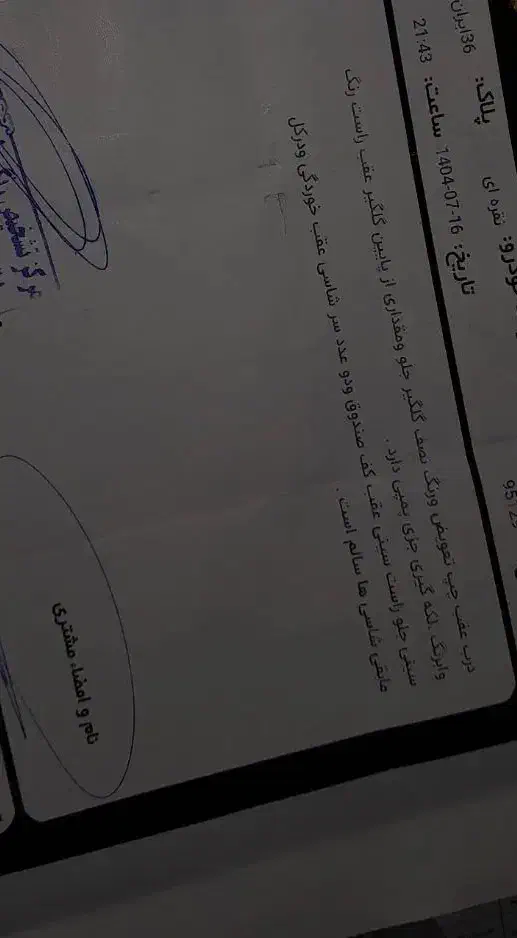 خودرو: نقره ای
پلاک: 36ایران
تاریخ: 1404-07-16 ساعت: 21:43
درب عقب چپ تعویض ورنگ نصف گلگیر جلو ومقداری از پایین گلگیر عقب راست رنگ
وابرنگ .لکه گیری جزی پمپی دارد .
سینی جلو راست سینی عقب کف صندوق ودو عدد سر شاسی عقب خوردگی ودرکل
مابقی شاسی ها سالم است .
نام و امضاء مشتری